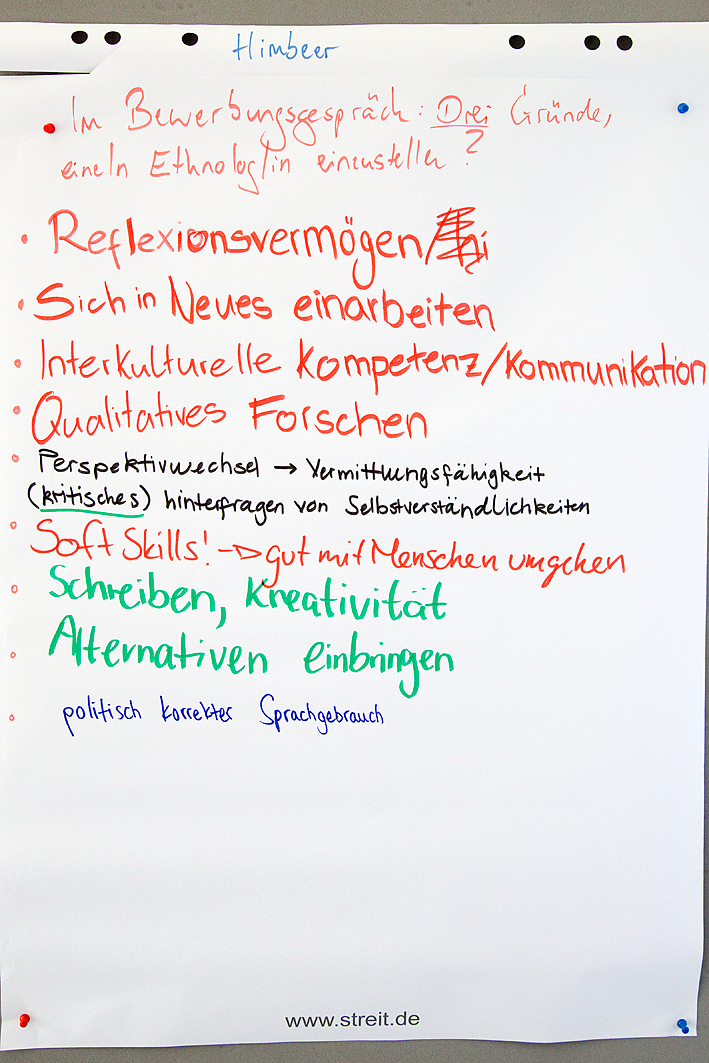 Himbeer
Im Bewerbungsgespräch: Drei Gründe,
eineIn EthnologIin einzustellen?
• Reflexionsvermögen/
• Sich in Neues einarbeiten
• Interkulturelle Kompetenz/Kommunikation
• Qualitatives Forschen
Perspektivwechsel → Vermittlungsfähigkeit
(kritisches) hinterfragen von Selbstverständlichkeiten
Soft Skills! → gut mit Menschen umgehen
Schreiben, Kreativität
Alternativen einbringen
politisch korrekter Sprachgebrauch
www.streit.de